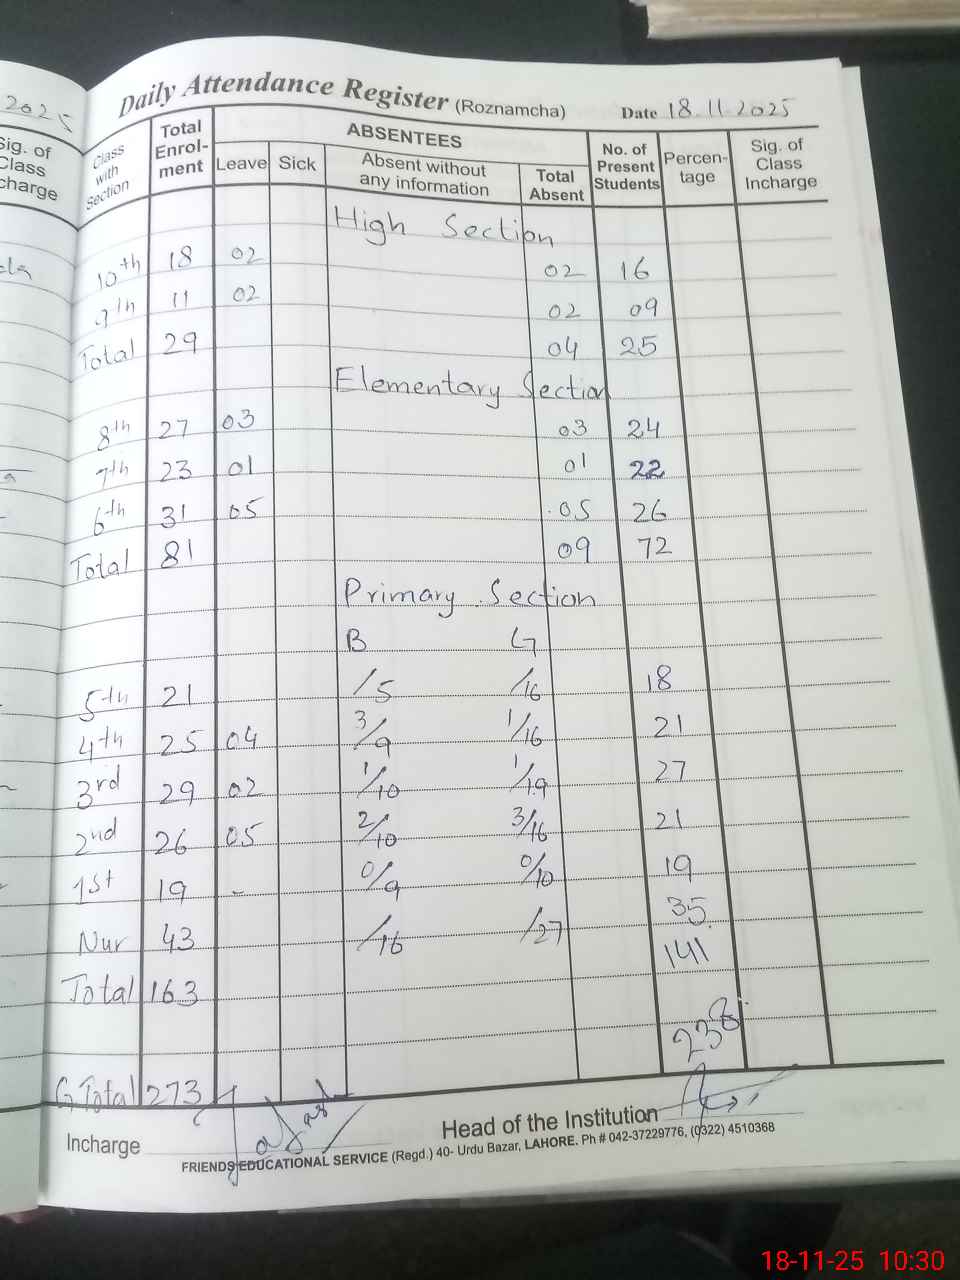 2025
Sig. of
Class
charge
Daily Attendance Register (Roznamcha) Date 18.11.2025
Class with Section
Total Enrol-ment
ABSENTEES
Leave Sick Absent without any information Total Absent
No. of Present Students
Percen-tage
Sig. of Class Incharge
High Section
10th 18 02 02 16
9th 11 02 02 09
Total 29 04 25
Elementary Section
8th 27 03 03 24
7th 23 01 01 22
6th 31 05 05 26
Total 81 09 72
Primary Section
B G
5th 21 /5 /16 18
4th 25 04 3/9 1/16 21
3rd 29 02 1/10 1/19 27
2nd 26 05 2/10 3/16 21
1st 19 - 0/9 0/10 19
Nur 43 /16 /27 35
Total 163 141
238
G Total 273
Incharge
Head of the Institution
FRIENDS EDUCATIONAL SERVICE (Regd.) 40- Urdu Bazar, LAHORE. Ph # 042-37229776, (0322) 4510368
18-11-25 10:30